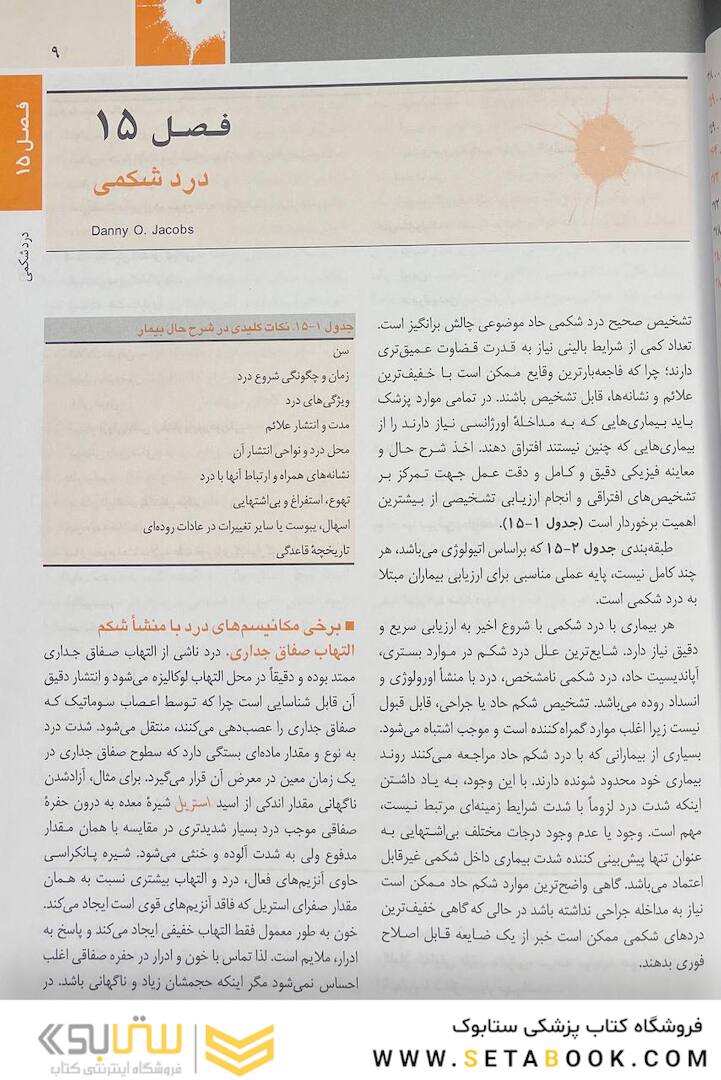 ۹
فصل ۱۵
درد شکمی
فصل ۱۵
درد شکمی
Danny O. Jacobs
تشخیص صحیح درد شکمی حاد موضوعی چالش برانگیز است.
تعداد کمی از شرایط بالینی نیاز به قدرت قضاوت عمیق‌تری
دارند؛ چرا که فاجعه‌بارترین وقایع ممکن است با خفیف‌ترین
علائم و نشانه‌ها، قابل تشخیص باشند. در تمامی موارد پزشک
باید بیماری‌هایی که به مداخلهٔ اورژانسی نیاز دارند را از
بیماری‌هایی که چنین نیستند افتراق دهند. اخذ شرح حال و
معاینه فیزیکی دقیق و کامل و دقت عمل جهت تمرکز بر
تشخیص‌های افتراقی و انجام ارزیابی تشخیصی از بیشترین
اهمیت برخوردار است (جدول ۱-۱۵).
طبقه‌بندی جدول ۲-۱۵ که براساس اتیولوژی می‌باشد، هر
چند کامل نیست، پایه عملی مناسبی برای ارزیابی بیماران مبتلا
به درد شکمی است.
هر بیماری با درد شکمی با شروع اخیر به ارزیابی سریع و
دقیق نیاز دارد. شایع‌ترین علل درد شکم در موارد بستری،
آپاندیسیت حاد، درد شکمی نامشخص، درد با منشأ اورولوژی و
انسداد روده می‌باشد. تشخیص شکم حاد یا جراحی، قابل قبول
نیست زیرا اغلب موارد گمراه‌کننده است و موجب اشتباه می‌شود.
بسیاری از بیمارانی که با درد شکم حاد مراجعه می‌کنند روند
بیماری خود محدود شونده دارند. با این وجود، به یاد داشتن
اینکه شدت درد لزوماً با شدت شرایط زمینه‌ای مرتبط نیست،
مهم است. وجود یا عدم وجود درجات مختلف بی‌اشتهایی به
عنوان تنها پیش‌بینی کننده شدت بیماری داخل شکمی غیرقابل
اعتماد می‌باشد. گاهی واضح‌ترین موارد شکم حاد ممکن است
نیاز به مداخله جراحی نداشته باشد در حالی که گاهی خفیف‌ترین
دردهای شکمی ممکن است خبر از یک ضایعه قابل اصلاح
فوری بدهند.
جدول ۱-۱۵. نکات کلیدی در شرح حال بیمار
سن
زمان و چگونگی شروع درد
ویژگی‌های درد
مدت و انتشار علائم
محل درد و نواحی انتشار آن
نشانه‌های همراه و ارتباط آنها با درد
تهوع، استفراغ و بی‌اشتهایی
اسهال، یبوست یا سایر تغییرات در عادات روده‌ای
تاریخچهٔ قاعدگی
■ برخی مکانیسم‌های درد با منشأ شکم
التهاب صفاق جداری. درد ناشی از التهاب صفاق جداری
ممتد بوده و دقیقاً در محل التهاب لوکالیزه می‌شود و انتشار دقیق
آن قابل شناسایی است چرا که توسط اعصاب سوماتیک که
صفاق جداری را عصب‌دهی می‌کنند، منتقل می‌شود. شدت درد
به نوع و مقدار ماده‌ای بستگی دارد که سطوح صفاق جداری در
یک زمان معین در معرض آن قرار می‌گیرد. برای مثال، آزادشدن
ناگهانی مقدار اندکی از اسید استریل شیرهٔ معده به درون حفرهٔ
صفاقی موجب درد بسیار شدیدتری در مقایسه با همان مقدار
مدفوع ولی به شدت آلوده و خنثی می‌شود. شیره پانکراسی
حاوی آنزیم‌های فعال، درد و التهاب بیشتری نسبت به همان
مقدار صفرای استریل که فاقد آنزیم‌های قوی است ایجاد می‌کند.
خون به طور معمول فقط التهاب خفیفی ایجاد می‌کند و پاسخ به
ادرار، ملایم است. لذا تماس با خون و ادرار در حفره صفاقی اغلب
احساس نمی‌شود مگر اینکه حجمشان زیاد و ناگهانی باشد. در
فروشگاه کتاب پزشکی ستابوک
WWW.SETABOOK.COM
ستابوک
فروشگاه اینترنتی کتاب